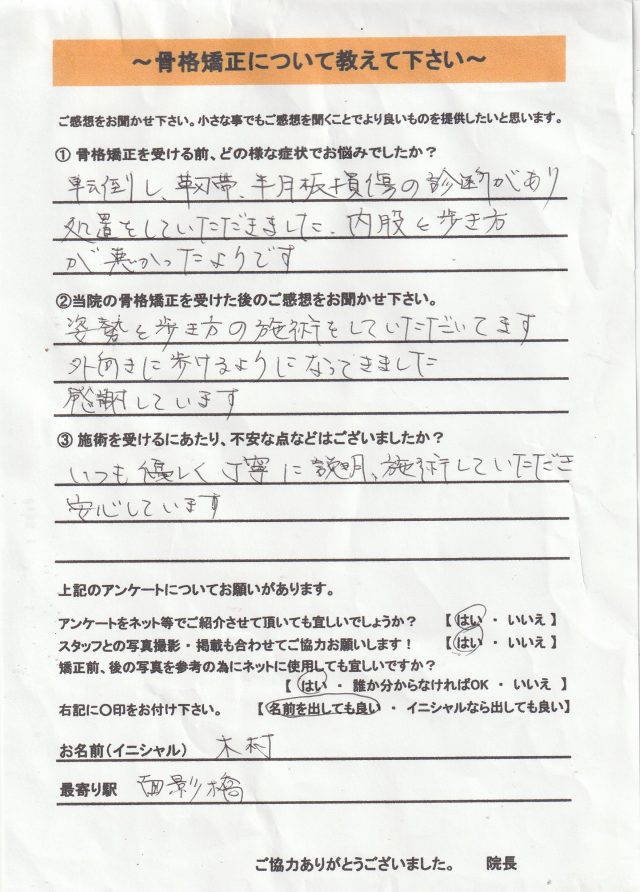 ～骨格矯正について教えて下さい～
ご感想をお聞かせ下さい。小さな事でもご感想を聞くことでより良いものを提供したいと思います。
① 骨格矯正を受ける前、どの様な症状でお悩みでしたか？
転倒し、靭帯、半月板損傷の診断があり
処置をしていただきました、内股と歩き方
が悪かったようです
②当院の骨格矯正を受けた後のご感想をお聞かせ下さい。
姿勢と歩き方の施術をしていただいてます
外向きに歩けるようになってきました
感謝しています
③ 施術を受けるにあたり、不安な点などはございましたか？
いつも優しく丁寧に説明、施術していただき
安心しています
上記のアンケートについてお願いがあります。
アンケートをネット等でご紹介させて頂いても宜しいでしょうか？ 【 はい ・ いいえ 】
スタッフとの写真撮影・掲載も合わせてご協力お願いします！ 【 はい ・ いいえ 】
矯正前、後の写真を参考の為にネットに使用しても宜しいですか？
【 はい ・ 誰か分からなければOK ・ いいえ 】
右記に〇印をお付け下さい。 【 名前を出しても良い ・ イニシャルなら出しても良い】
お名前（イニシャル） 木村
最寄り駅 面影橋
ご協力ありがとうございました。 院長